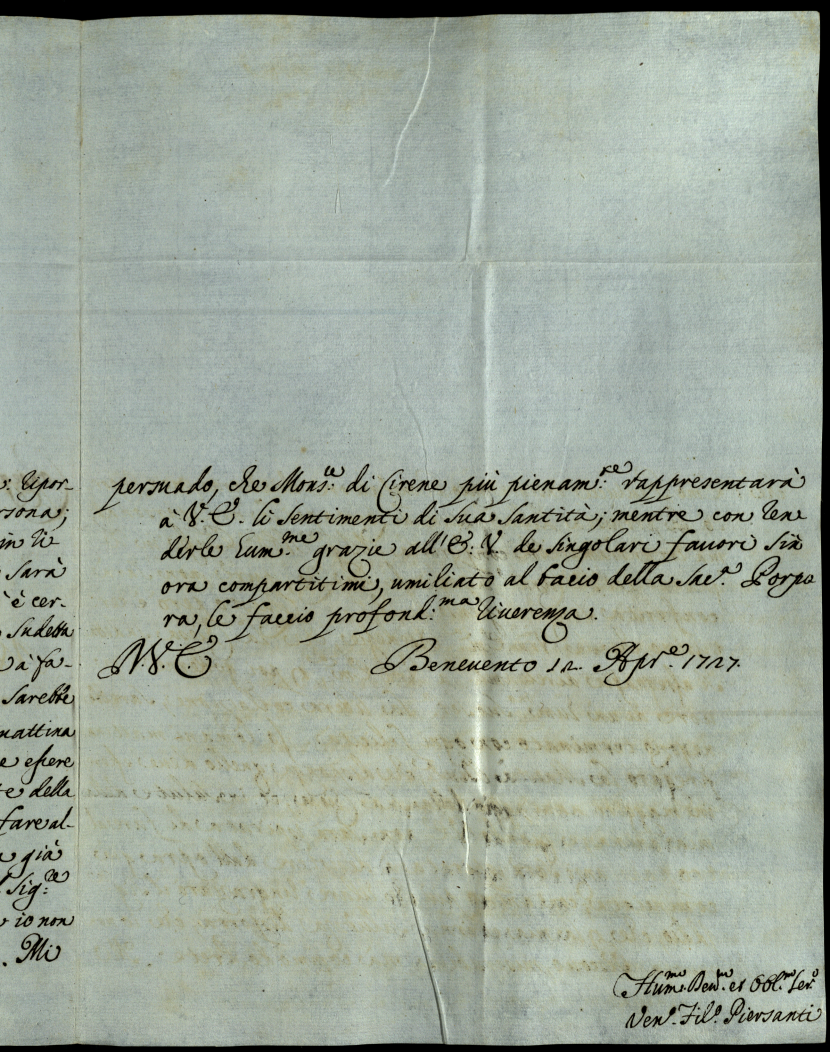 : Ripor-
rsona;
in ri
Sarà
è cer-
Sudetta
à fa-
Sarebbe
mattina
e essere
te della
fare al-
già
Sig:re
io non
. Mi
persuado, che Mons:re di Cirene più pienam:te rappresentarà
à V. E. li Sentimenti di Sua Santità; mentre con ren
derle Eum.me grazie all'E: V. de singolari favori sin
ora compartitimi, umiliato al bacio della Sac.a Porpo
ra, le faccio profond:ma riverenza.
N. V. E. Benevento 12. Apr.e 1727.
Hum:mo Dev:mo et Obl:mo Ser:e
Ven.o Fil.o Piersanti